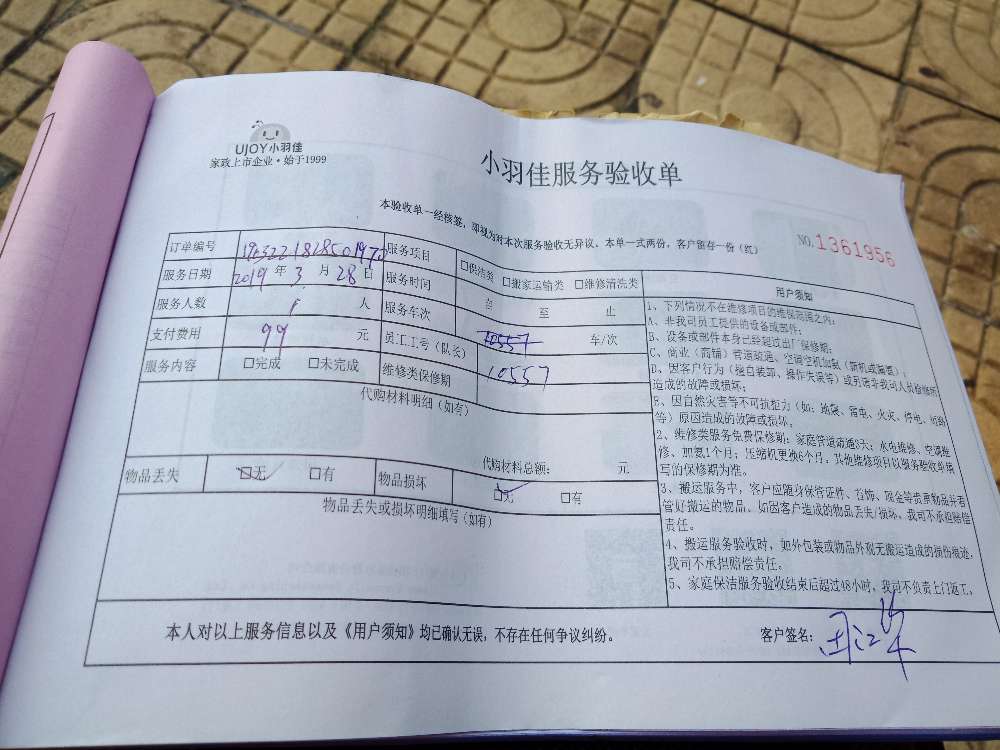 UJOY小羽佳
家政上市企业·始于1999
小羽佳服务验收单
本验收单一经核签，即视为对本次服务验收无异议。本单一式两份，客户留存一份（红）
NO.1361956
订单编号
服务项目 □保洁类 □搬家运输类 □维修清洗类
服务日期 2019 年 3 月 28 日 服务时间 自 至 止
服务人数 1 人 服务车次 车/次
支付费用 99 元 员工工号（队长） 10557
服务内容 □完成 □未完成 维修类保修期 10557
代购材料明细（如有）
代购材料总额： 元
物品丢失 □无 □有 物品损坏 □无 □有
物品丢失或损坏明细填写（如有）
用户须知
1、下列情况不在维修项目的维保范围之内：
A、非我司员工提供的设备或部件；
B、设备或部件本身已经超过出厂保修期；
C、商业（商铺）管道疏通、空调空机加氟（新机或漏氟）；
D、因客户行为（擅自装卸、操作失误等）或另请非我司人员检修所
造成的故障或损坏；
E、因自然灾害等不可抗拒力（如：地震、雷电、火灾、停电、
等）原因造成的故障或损坏。
2、维修类服务免费保修期：家庭管道疏通3天；水电维修、空调维
修、加氟1个月；压缩机更换6个月，其他维修项目以服务验收单填
写的保修期为准。
3、搬运服务中，客户应随身保管证件、首饰、现金等贵重物品并看
管好搬运的物品。如因客户造成的物品丢失/损坏，我司不承担赔偿
责任。
4、搬运服务验收时，如外包装或物品外观无搬运造成的损伤痕迹，
我司不承担赔偿责任。
5、家庭保洁服务验收结束后超过48小时，我司不负责上门返工。
本人对以上服务信息以及《用户须知》均已确认无误，不存在任何争议纠纷。
客户签名：